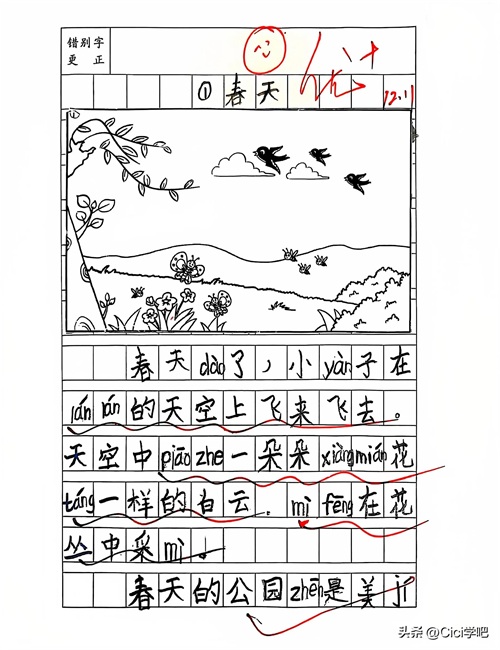 错别字
更正
优+
①春天
12.11
春天dào了，小yàn子在
lán lán的天空上飞来飞去。
天空中piāo zhe一朵朵xiàng mián花
táng一样的白云。mì fēng在花
丛中采mì。
春天的公园zhēn是美
头条 @Cici学吧